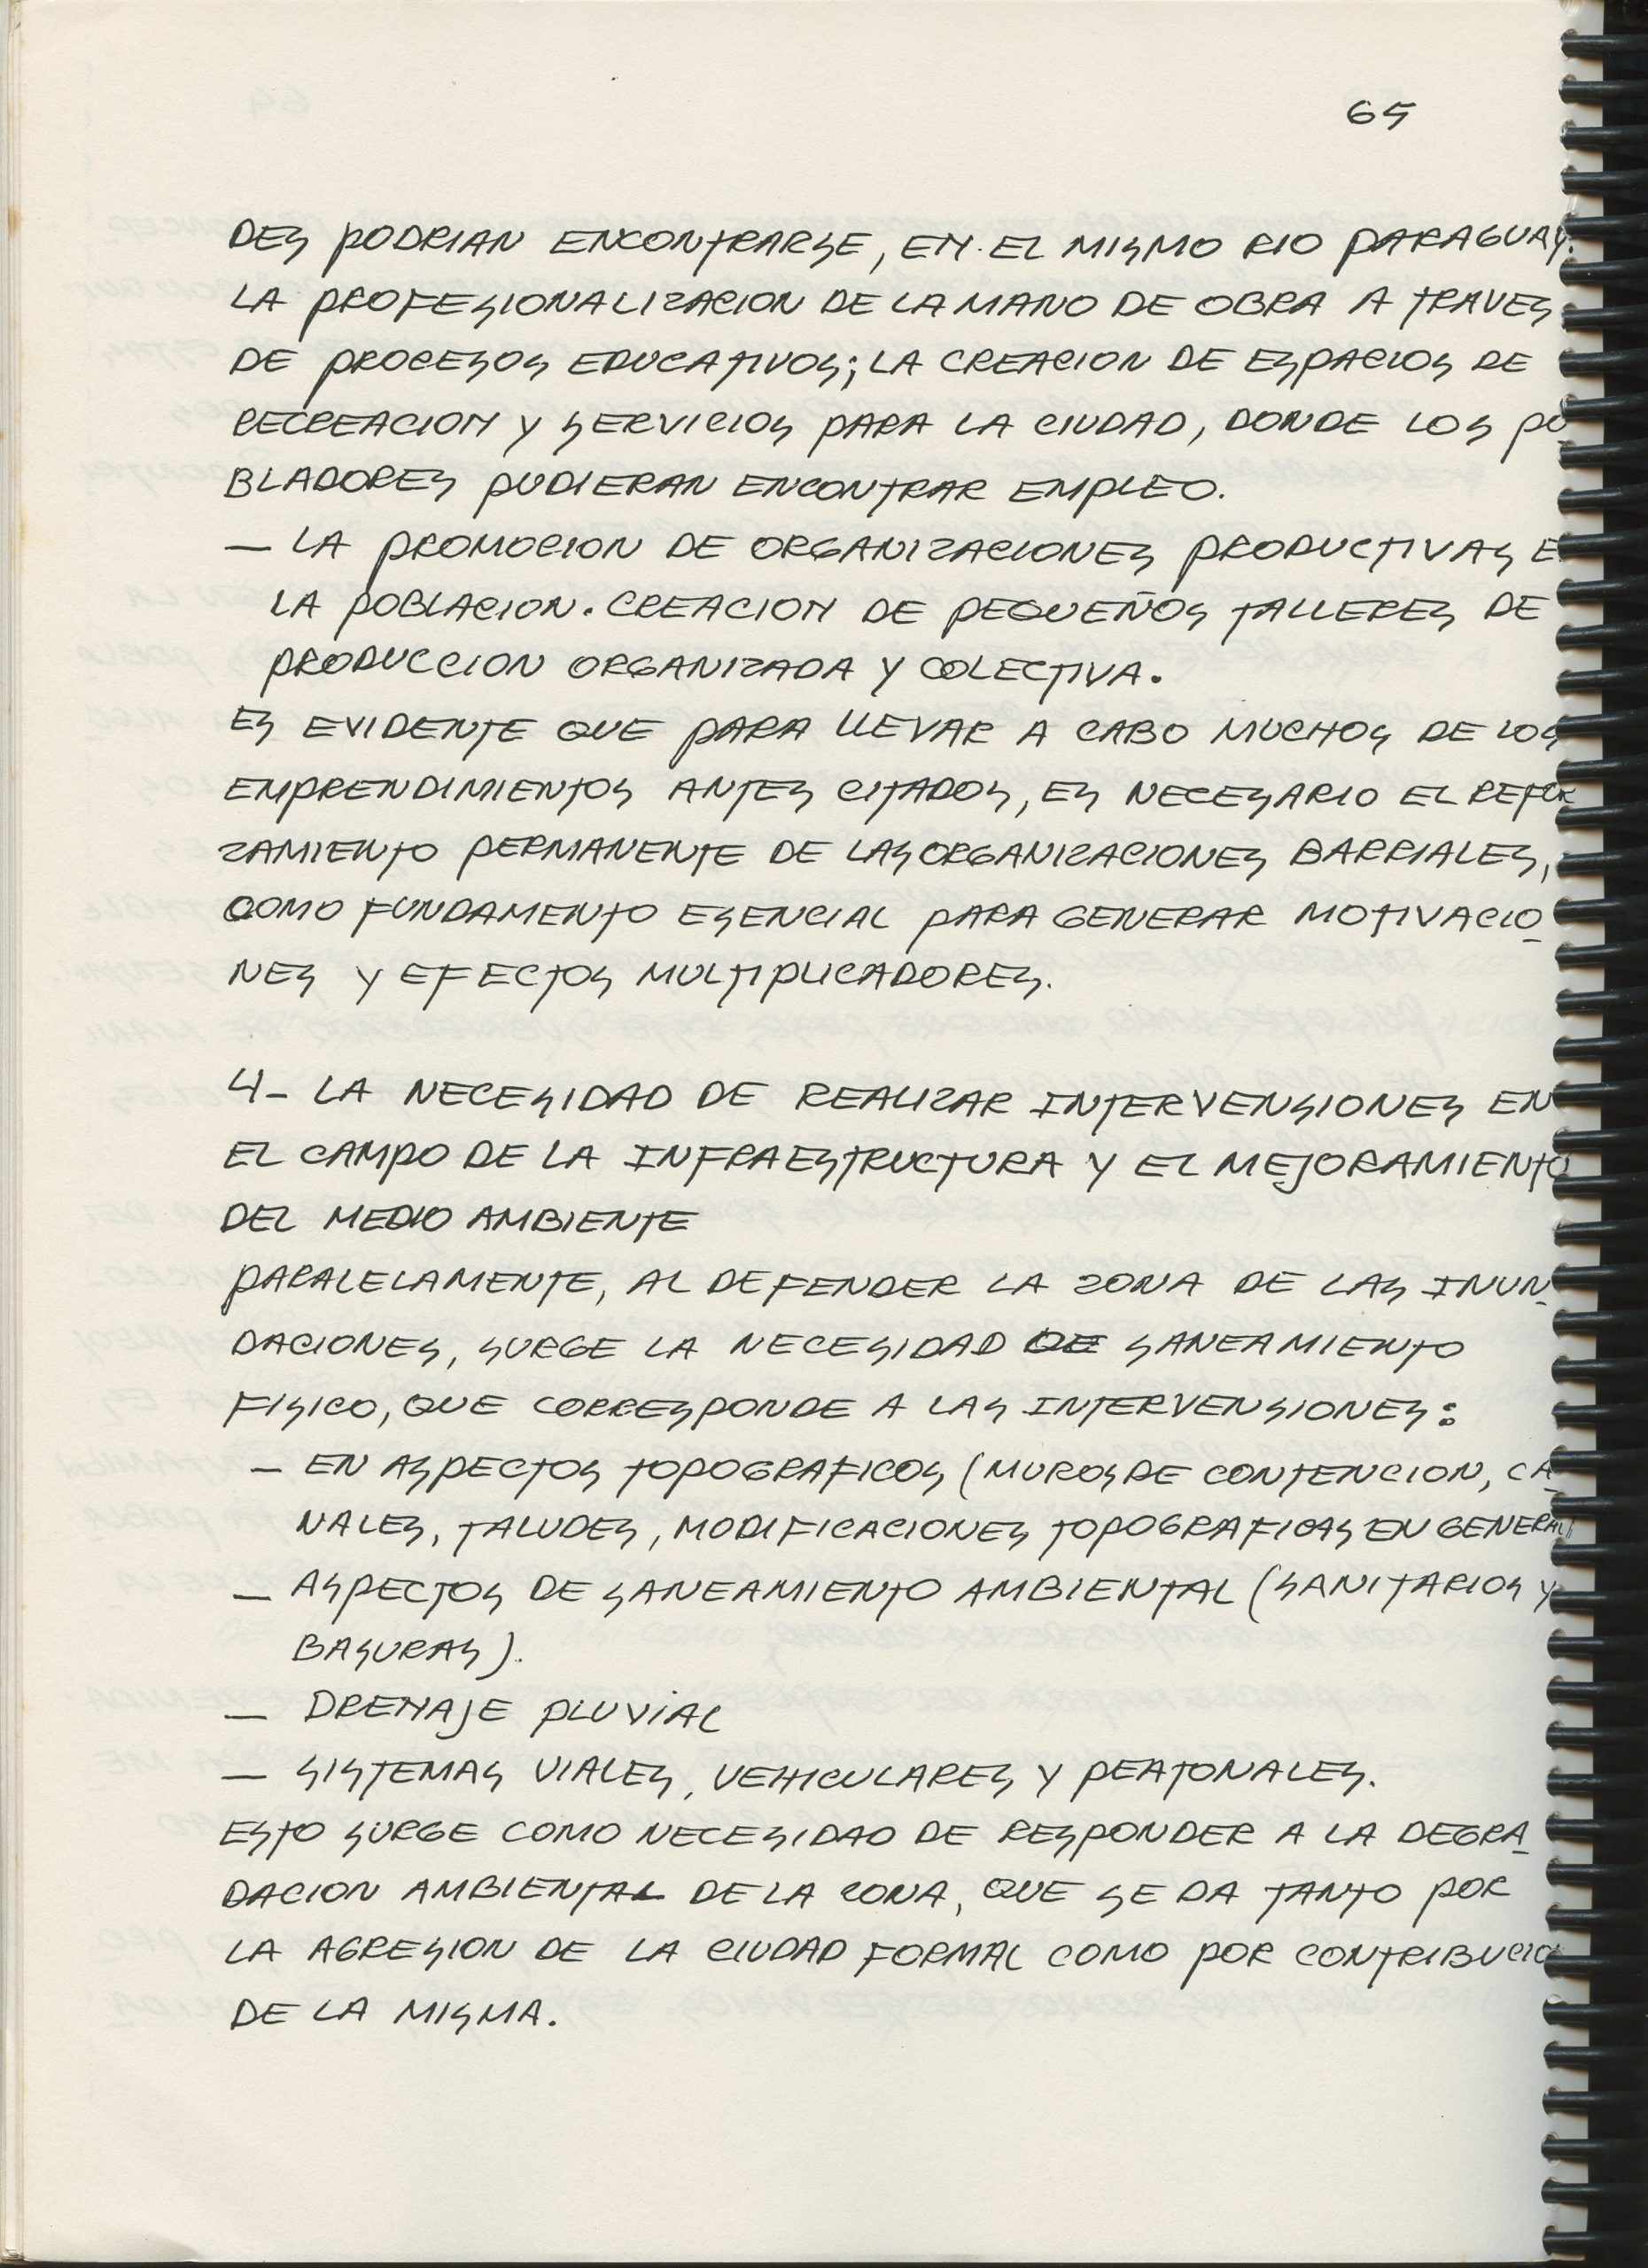 65
DES PODRIAN ENCONTRARSE, EN EL MISMO RIO PARAGUAY.
LA PROFESIONALIZACION DE LA MANO DE OBRA A TRAVES
DE PROCESOS EDUCATIVOS; LA CREACION DE ESPACIOS DE
RECREACION Y SERVICIOS PARA LA CIUDAD, DONDE LOS PO
BLADORES PUDIERAN ENCONTRAR EMPLEO.
— LA PROMOCION DE ORGANIZACIONES PRODUCTIVAS E
LA POBLACION. CREACION DE PEQUEÑOS TALLERES DE
PRODUCCION ORGANIZADA Y COLECTIVA.
ES EVIDENTE QUE PARA LLEVAR A CABO MUCHOS DE LOS
EMPRENDIMIENTOS ANTES CITADOS, ES NECESARIO EL REFOR
ZAMIENTO PERMANENTE DE LAS ORGANIZACIONES BARRIALES,
COMO FUNDAMENTO ESENCIAL PARA GENERAR MOTIVACIO
NES Y EFECTOS MULTIPLICADORES.
4- LA NECESIDAD DE REALIZAR INTERVENSIONES EN
EL CAMPO DE LA INFRAESTRUCTURA Y EL MEJORAMIENTO
DEL MEDIO AMBIENTE
PARALELAMENTE, AL DEFENDER LA ZONA DE LAS INUN-
DACIONES, SURGE LA NECESIDAD DE SANEAMIENTO
FISICO, QUE CORRESPONDE A LAS INTERVENSIONES:
— EN ASPECTOS TOPOGRAFICOS (MUROS DE CONTENCION, CA-
NALES, TALUDES, MODIFICACIONES TOPOGRAFICAS EN GENERAL)
— ASPECTOS DE SANEAMIENTO AMBIENTAL (SANITARIOS Y
BASURAS).
— DRENAJE PLUVIAL
— SISTEMAS VIALES, VEHICULARES Y PEATONALES.
ESTO SURGE COMO NECESIDAD DE RESPONDER A LA DEGRA-
DACION AMBIENTAL DE LA ZONA, QUE SE DA TANTO POR
LA AGRESION DE LA CIUDAD FORMAL COMO POR CONTRIBUCIO
DE LA MISMA.